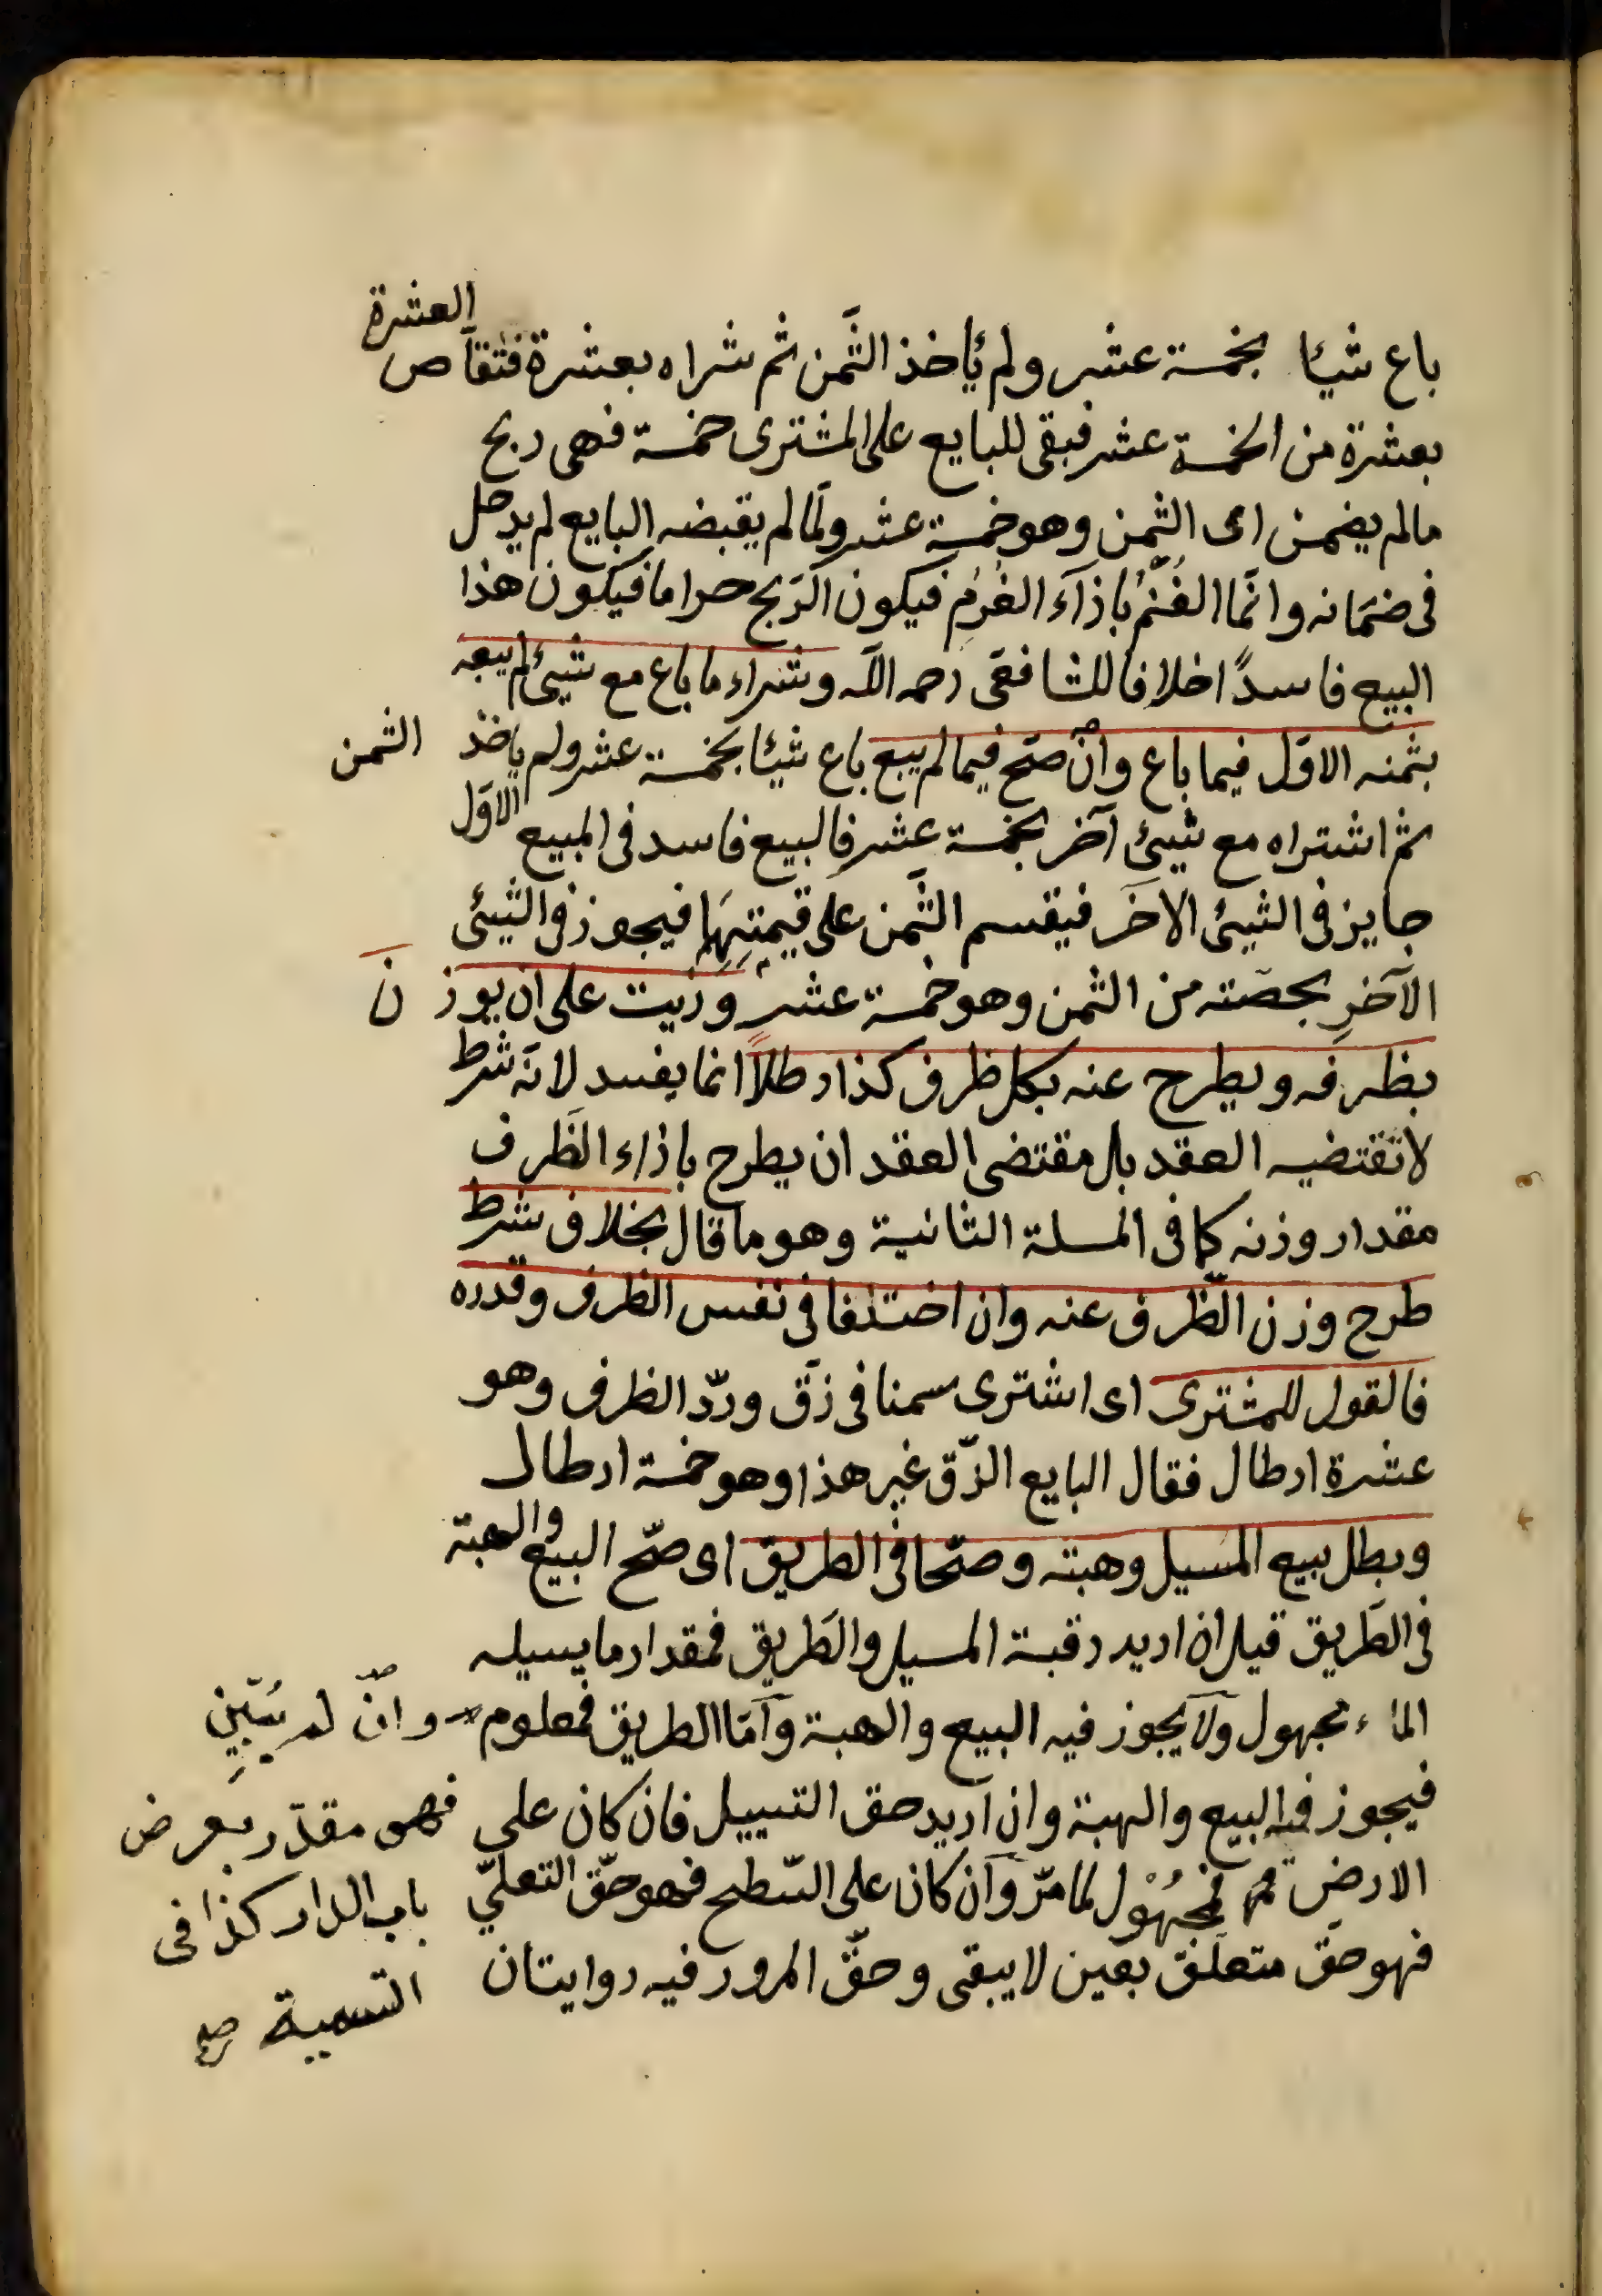 باع شيئا بخمسة عشر ولم يأخذ الثمن ثم شراه بعشرة فتقاص العشرة
بعشرة من الخمسة عشر فبقى للبايع على المشترى خمسة فهى ربح
مالم يضمن اى الثمن وهو خمسة عشر ولما لم يقبضه البايع لم يدخل
فى ضمانه وانما الغنم بازآء الغرم فيكون الربح حراما فيكون هذا
البيع فاسدا خلافا للشافعى رحمه الله وشراء ما باع مع شيئ لم يبعه
بثمنه الاول فيما باع وان صح فيما لم يبع باع شيئا بخمسة عشر ولم ياخذ الثمن
ثم اشتراه مع شيئ آخر بخمسة عشر فالبيع فاسد فى المبيع الاول
جايز فى الشيئ الاخر فيقسم الثمن على قيمتهما فيجوز فى الشيئ
الآخر بحصته من الثمن وهو خمسة عشر وزيت على ان يوزن
بظرفه ويطرح عنه بكل ظرف كذا رطلا انما يفسد لانه شرط
لا تقتضيه العقد بل مقتضى العقد ان يطرح بازاء الظرف
مقدار وزنه كما فى المسلة الثانية وهو ما قال بخلاف شرط
طرح وزن الظرف عنه وان اختلفا فى نفس الظرف وقدره
فالقول للمشترى اى اشترى سمنا فى زق ورد الظرف وهو
عشرة ارطال فقال البايع الزق غير هذا وهو خمسة ارطال
وبطل بيع المسيل وهبته وصحا فى الطريق اى صح البيع والهبة
فى الطريق قيل ان اريد رقبة المسيل والطريق فمقدار ما يسيله
الماء مجهول ولا يجوز فيه البيع والهبة واما الطريق فمعلوم
فيجوز فيه البيع والهبة وان اريد حق التسييل فان كان على
الارض فمجهول لما مر وان كان على السطح فهو حق التعلى
فهو حق متعلق بعين لا يبقى وحق المرور فيه روايتان
وان لم يبين
فهو مقدر بعرض
باب الدار كذا فى
التسمية صح